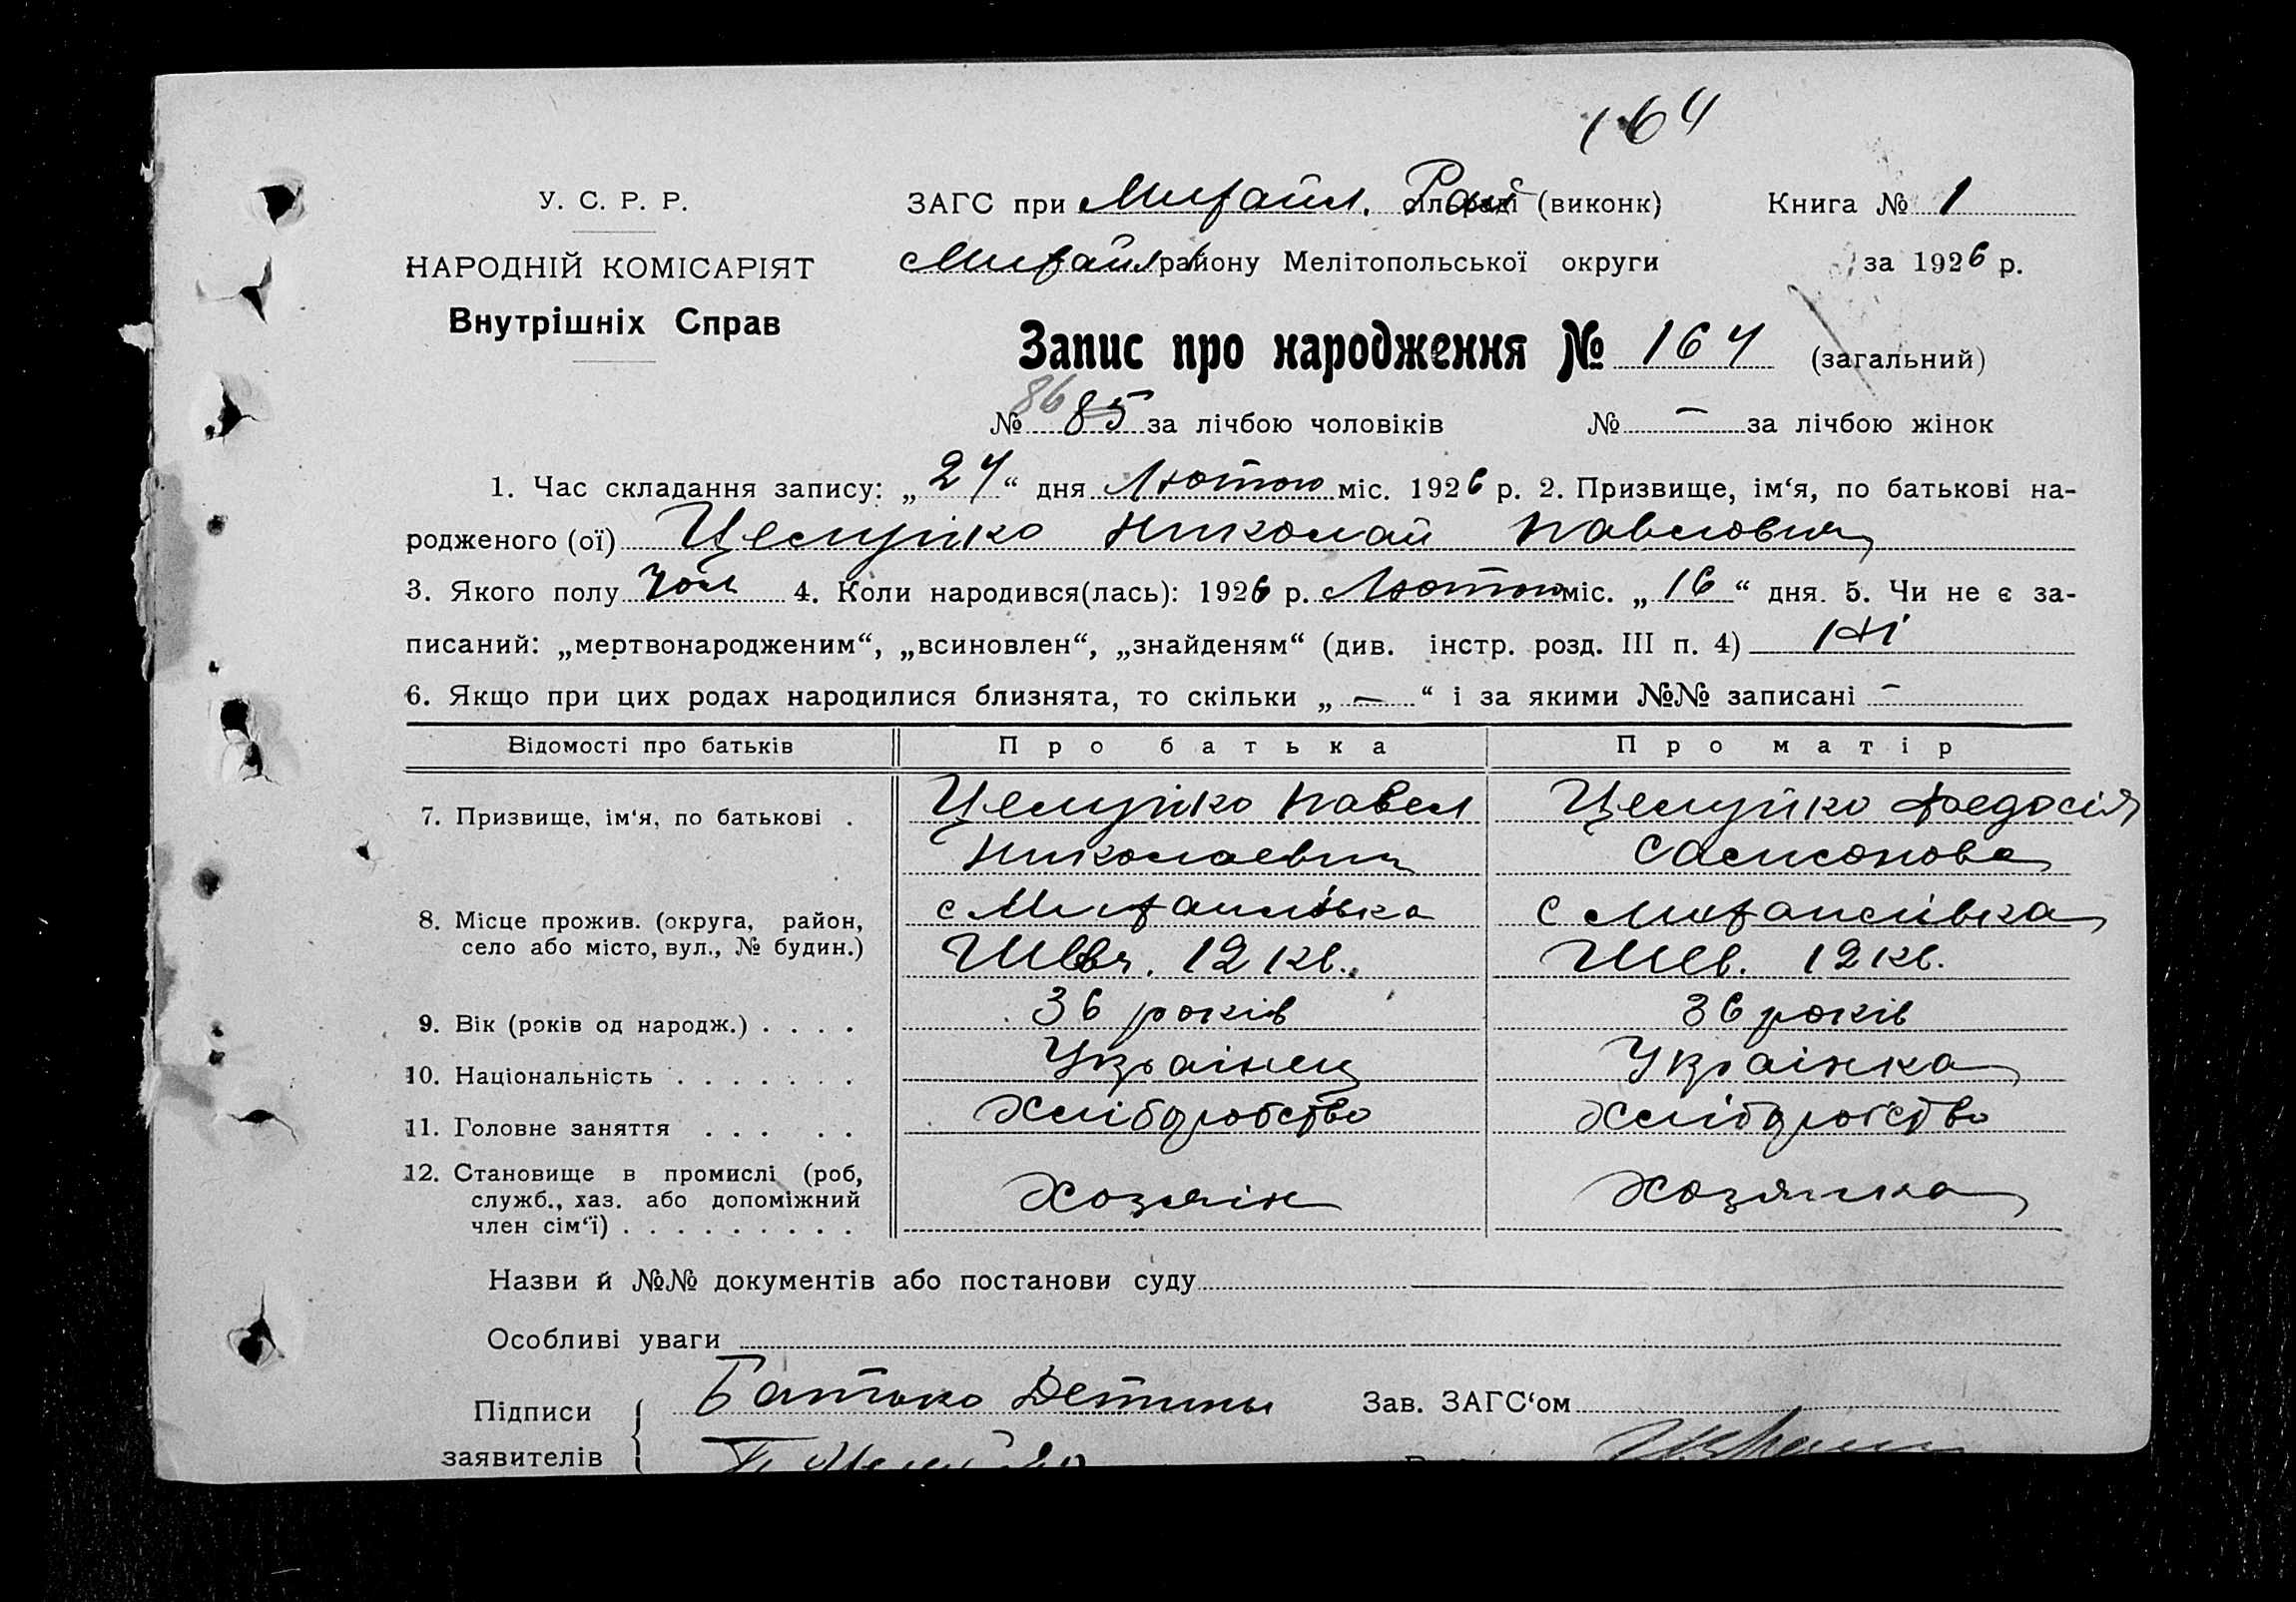 164
У. С. Р. Р.
НАРОДНІЙ КОМІСАРІЯТ
Внутрішніх Справ
ЗАГС при Михайл. Рай (виконк)
Книга № 1
Михайл району Мелітопольської округи
за 1926 р.
Запис про народження № 164 (загальний)
86
№ 85 за лічбою чоловіків № — за лічбою жінок
1. Час складання запису: „24“ дня Лютого міс. 1926 р. 2. Призвище, ім‘я, по батькові на-
родженого (ої) Целуйко Николай Павлович
3. Якого полу чол 4. Коли народився(лась): 1926 р. Лютого міс. „16“ дня. 5. Чи не є за-
писаний: „мертвонародженим“, „всиновлен“, „знайденям“ (див. інстр. розд. III п. 4) Ні
6. Якщо при цих родах народилися близнята, то скільки „—“ і за якими №№ записані —
Відомості про батьків Про батька Про матір
7. Призвище, ім‘я, по батькові . Целуйко Павел Целуйко Федосія
Николаевич Самсонова
8. Місце прожив. (округа, район, с Михайлівка с Михайлівка
село або місто, вул., № будин.) Шевч. 12 кв. Шев. 12 кв.
9. Вік (років од народж.) . . . . 36 років 36 років
10. Національність . . . . . . . Українец Українка
11. Головне заняття . . . . . Хліборобство Хліборобство
12. Становище в промислі (роб,
служб., хаз. або допоміжний Хозяін Хозяйка
член сім‘ї) . . . . . . . . .
Назви й №№ документів або постанови суду
Особливі уваги
Підписи Батько Детины Зав. ЗАГС‘ом
заявителів П Целуйко